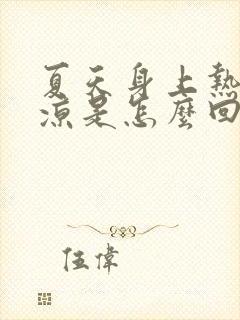 夏天身上熱
涼是怎麼回
伍偉